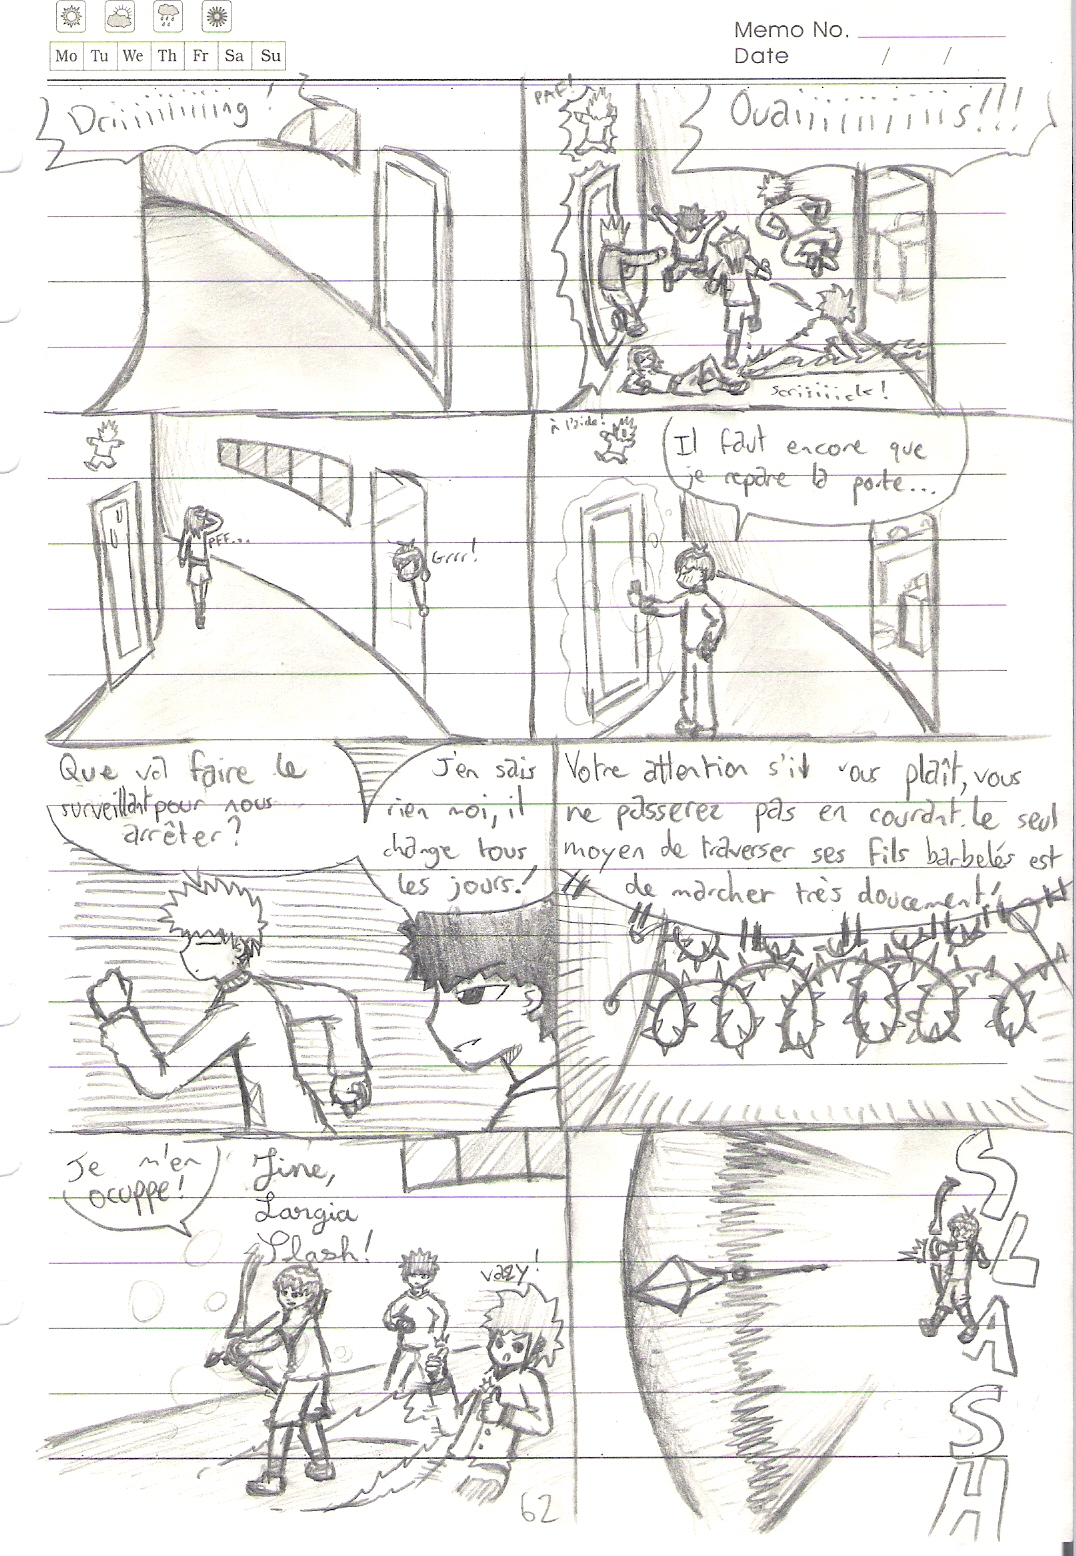 Memo No.
Mo Tu We Th Fr Sa Su
Date / /
Driiiiiiiiing !
PAF!
Ouaiiiiiiiiiiiis!!!
scriiiiiick!
PFF...
Grrr!
À l'aide!
Il faut encore que
je repare la porte...
Que va faire le
surveillant pour nous
arrêter?
J'en sais
rien moi, il
change tous
les jours!
Votre attention s'il vous plaît, vous
ne passerez pas en courant. Le seul
moyen de traverser ses fils barbelés est
de marcher très doucement!
Je m'en
ocuppe!
Jine,
Largia
Slash!
vazy!
SLASH
62